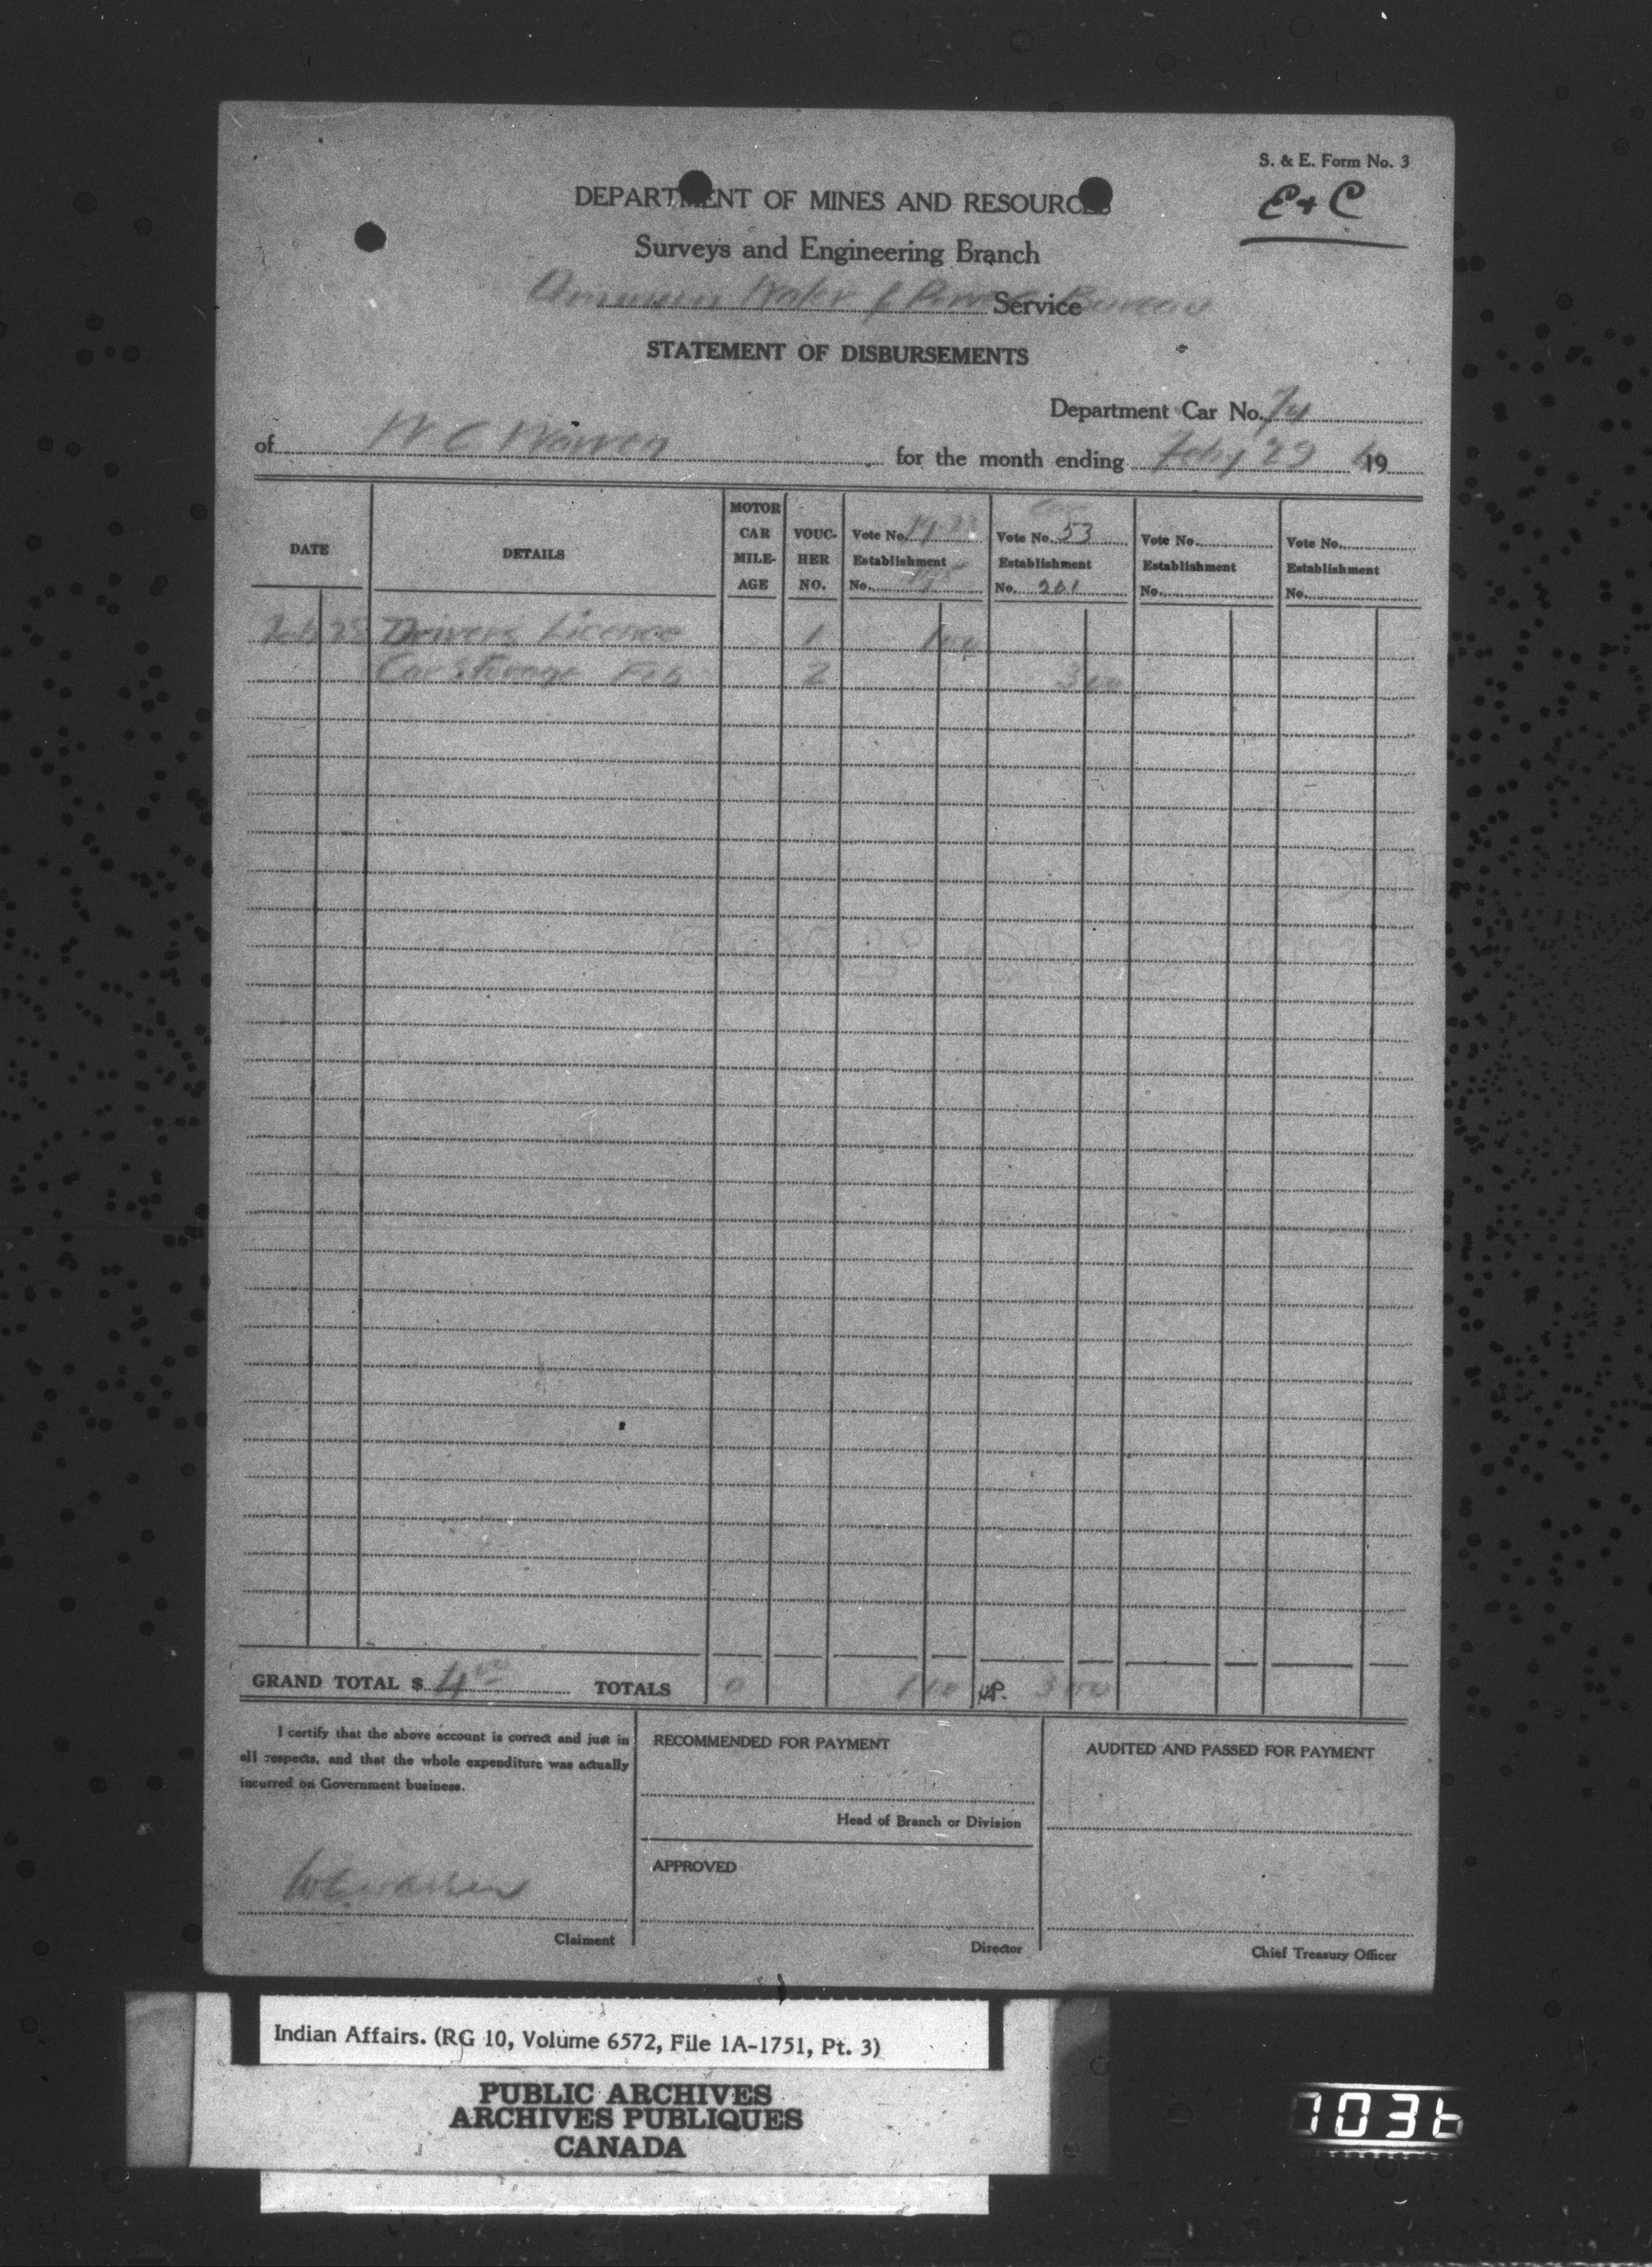 S. & E. Form No. 3
E + C
DEPARTMENT OF MINES AND RESOURCES
Surveys and Engineering Branch
Water & Power Bureau
Service
STATEMENT OF DISBURSEMENTS
Department Car No. 74
of W C Warren for the month ending Feby 29 19
DATE DETAILS MOTOR CAR MILE- AGE VOUC- HER NO. Vote No. Establishment No. Vote No. 53 Establishment No. 201 Vote No. Establishment No. Vote No. Establishment No.
Drivers Licence 1 1 00
Car Storage Feb 2 3 00
GRAND TOTAL $ 4 00 TOTALS 0 1 00 3 00
I certify that the above account is correct and just in
all respects, and that the whole expenditure was actually
incurred on Government business.
WC Warren
Claimant
RECOMMENDED FOR PAYMENT
Head of Branch or Division
APPROVED
Director
AUDITED AND PASSED FOR PAYMENT
Chief Treasury Officer
Indian Affairs. (RG 10, Volume 6572, File 1A-1751, Pt. 3)
PUBLIC ARCHIVES
ARCHIVES PUBLIQUES
CANADA